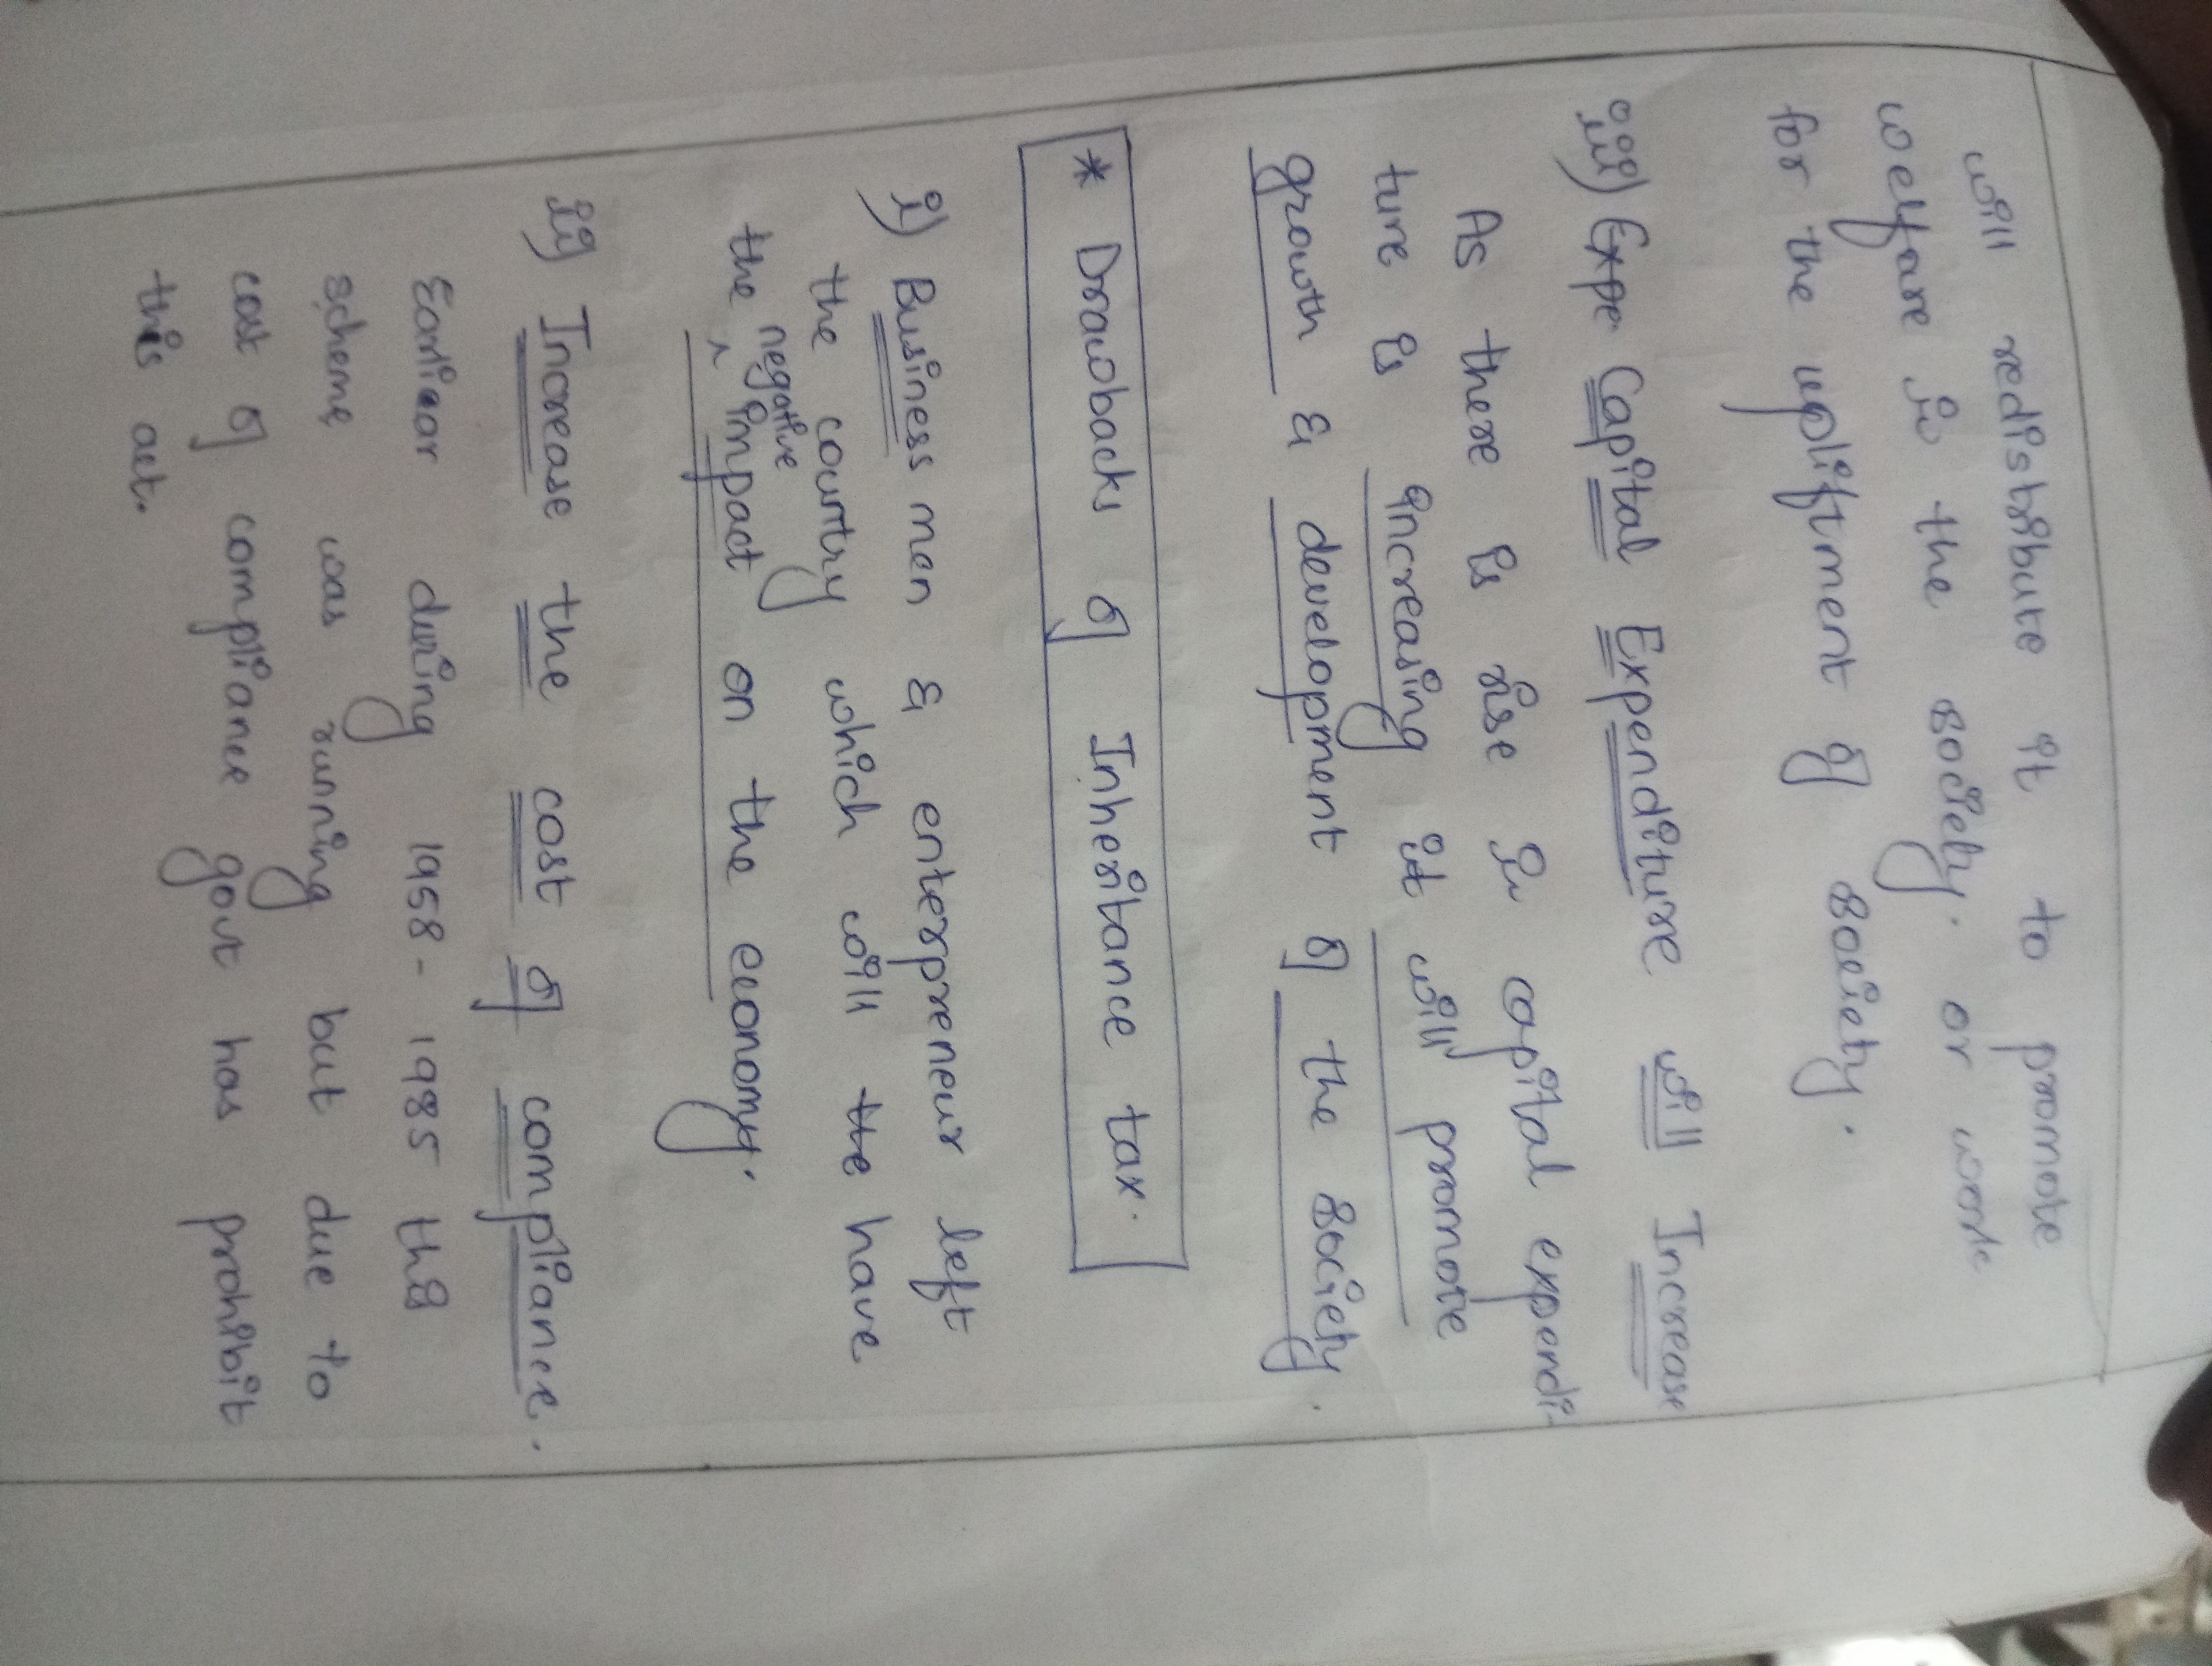 will redistribute it to promote
welfare in the society. or work
for the upliftment of society.
iii) Expe Capital Expenditure will Increase
As there is rise in capital expendi-
ture is increasing it will promote
growth & development of the society.
* Drawbacks of Inheritance tax.
i) Business men & enterpreneur left
the country which will the have
the negative impact on the economy.
ii) Increase the cost of compliance.
Earliar during 1958-1985 this
scheme was running but due to
cost of compliance govt has prohibit
this act.